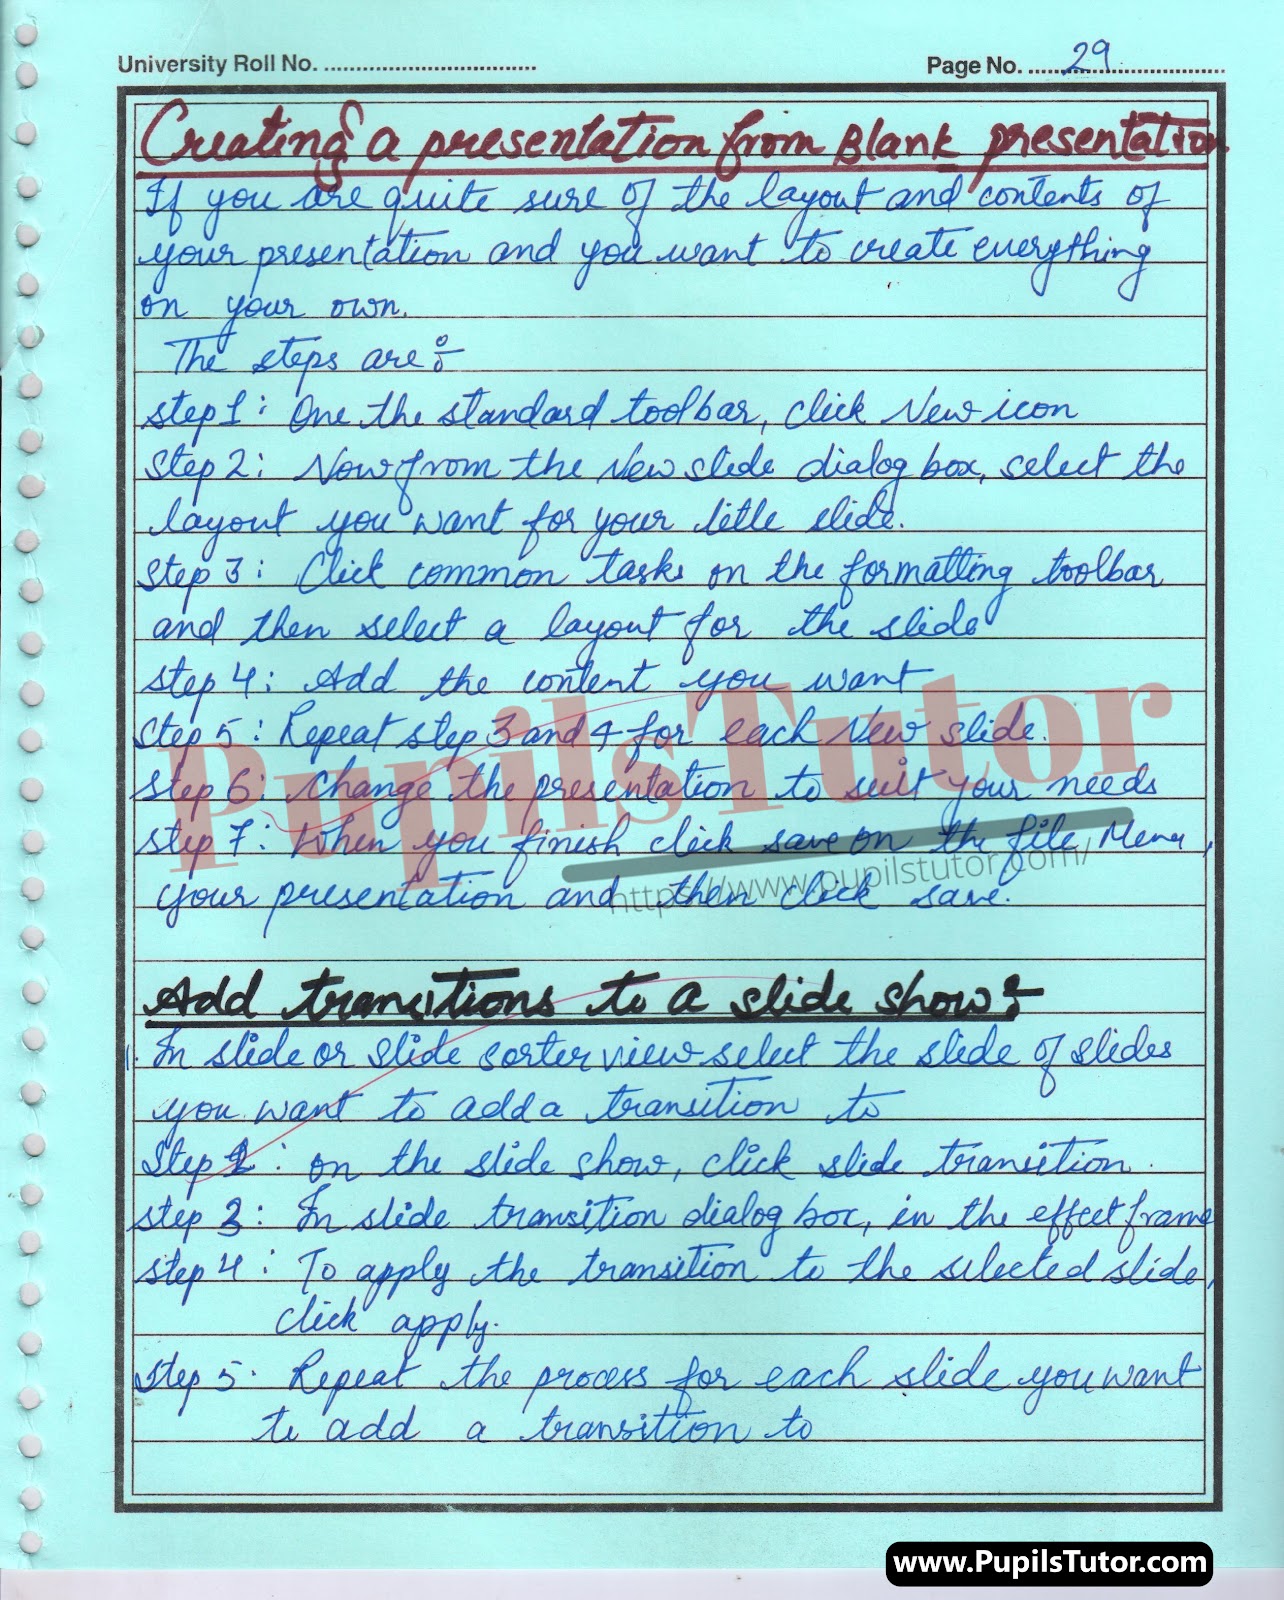 University Roll No. ..................................
Page No. ...29...
Creating a presentation from Blank presentation
If you are quite sure of the layout and contents of
your presentation and you want to create everything
on your own.
The steps are :-
Step 1 : One the standard toolbar, click New icon
Step 2 : Now from the New slide dialog box, select the
layout you want for your title slide.
Step 3 : Click common tasks on the formatting toolbar
and then select a layout for the slide
Step 4 : Add the content you want
Step 5 : Repeat step 3 and 4 for each New slide.
Step 6 : Change the presentation to suit your needs
Step 7 : When you finish click save on the file Menu,
your presentation and then click save.
PupilsTutor
https://www.pupilstutor.com/
Add transitions to a slide show :-
1. In slide or slide sorter view select the slide of slides
you want to add a transition to
Step 2 : on the slide show, click slide transition.
Step 3 : In slide transition dialog box, in the effect frame
Step 4 : To apply the transition to the selected slide,
click apply.
Step 5. Repeat the process for each slide you want
to add a transition to
www.PupilsTutor.com